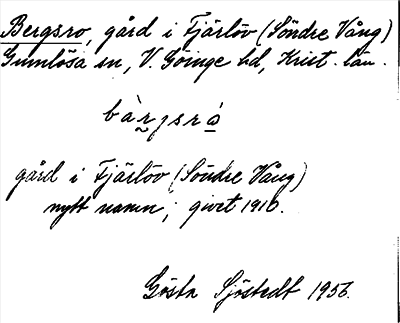 Bergsro, gård i Fjärlöv (Söndre Vång)
Gumlösa sn, V. Göinge hd, Krist. län.
bàr̰gsrá̱
gård i Fjärlöv (Söndre Vång)
nytt namn; givet 1910.
Gösta Sjöstedt 1956.